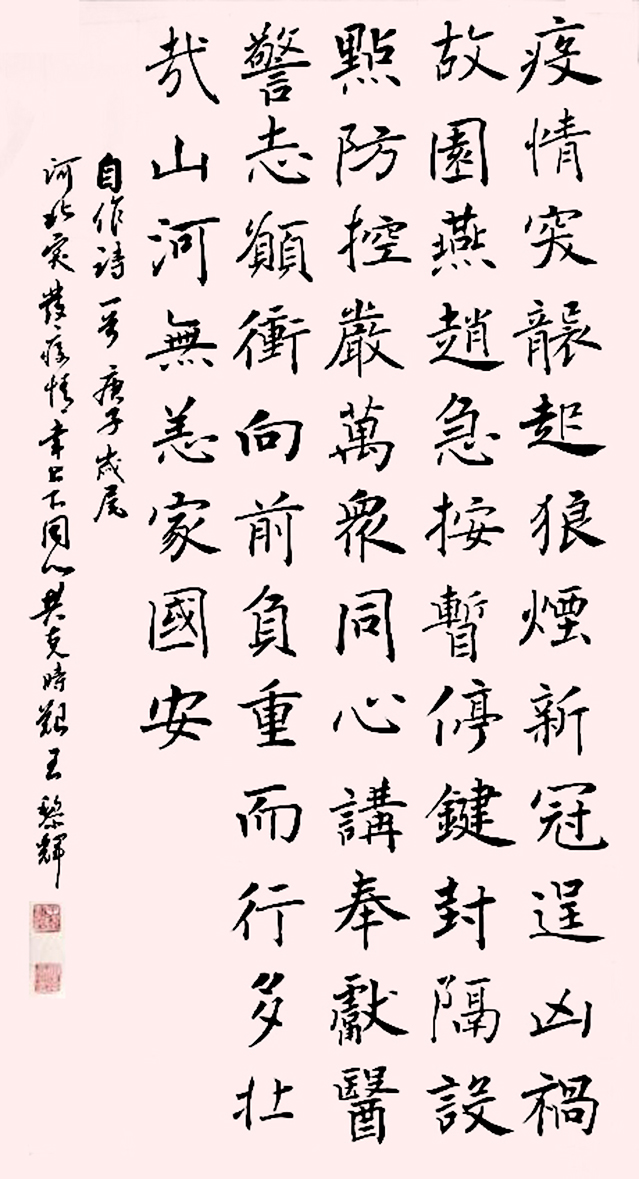 疫情突襲起狼煙新冠逞凶禍
故園燕趙急按暫停鍵封隔設
點防控嚴萬衆同心講奉獻醫
警志願衝向前負重而行多壯
哉山河無恙家國安
自作詩一首庚子歲尾
河北突發疫情幸上下同心共克時艱王黎輝